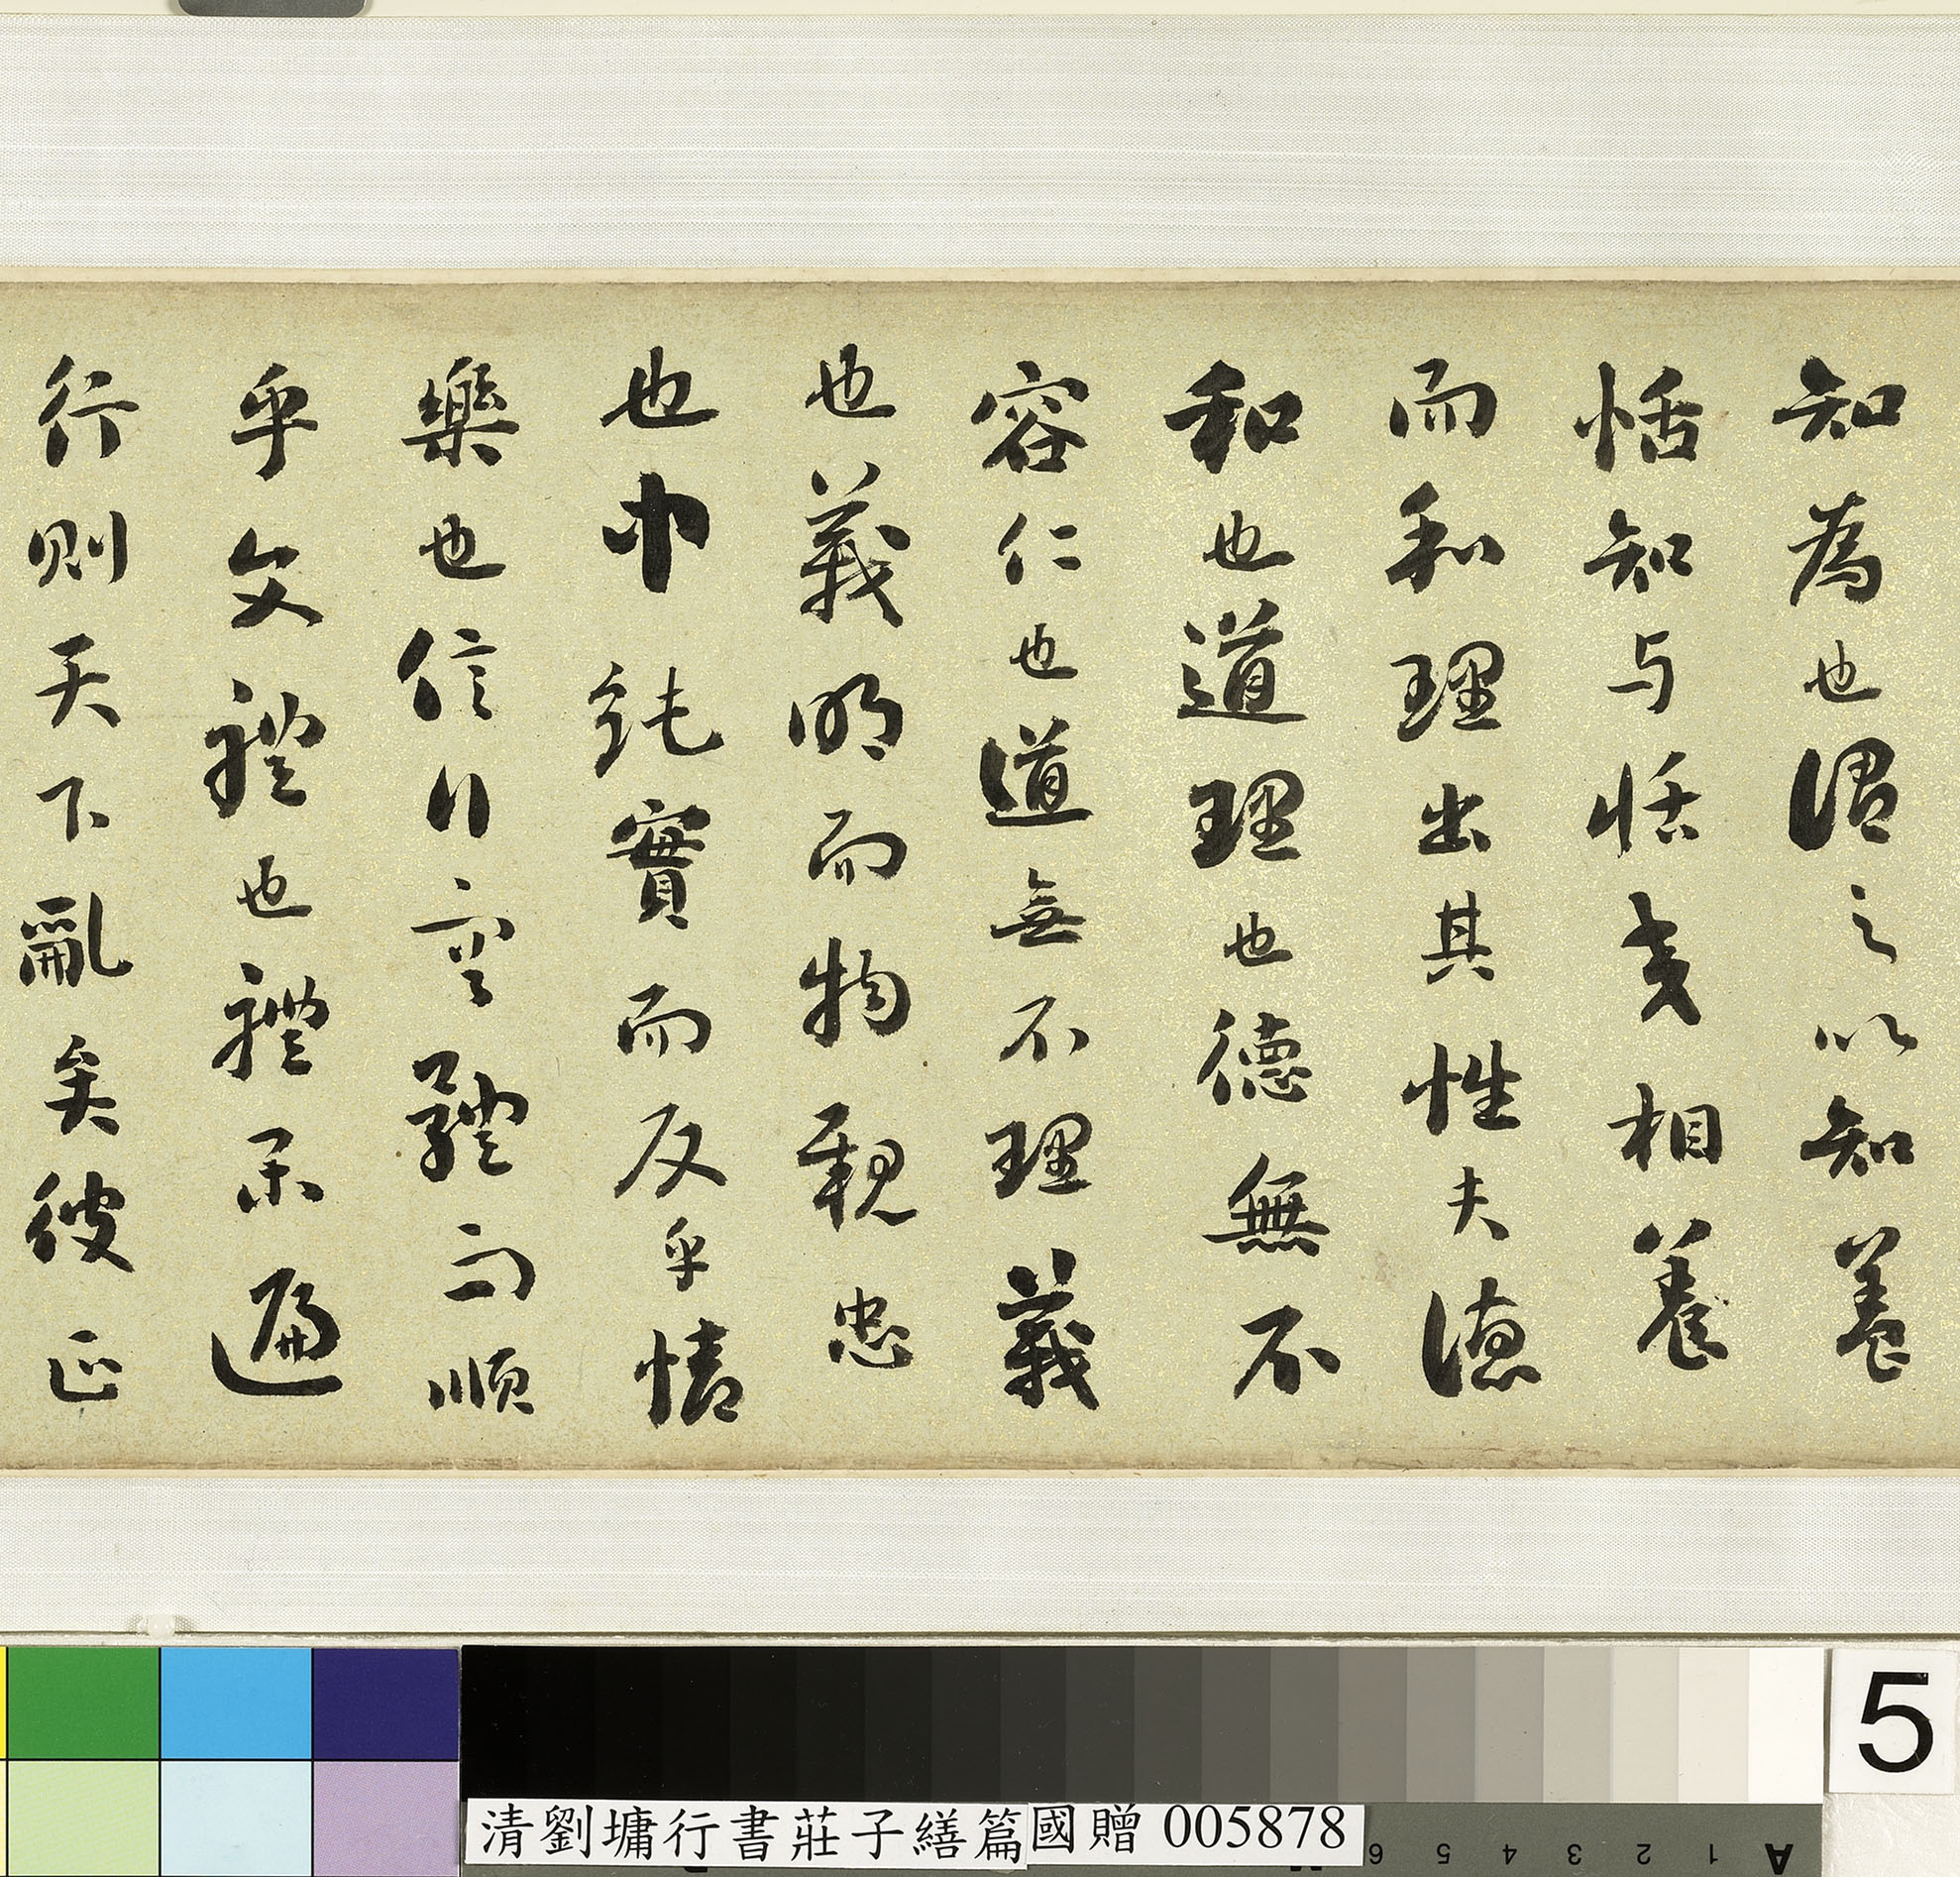 知為也謂之以知養
恬知与恬交相養
而和理出其性夫德
和也道理也德無不
容仁也道無不理義
也義明而物親忠
也中純實而反乎情
樂也信行容體而順
乎文禮也禮樂遍
行則天下亂矣彼正
清劉墉行書莊子繕篇國贈 005878
5
A 1 2 3 4 5 6